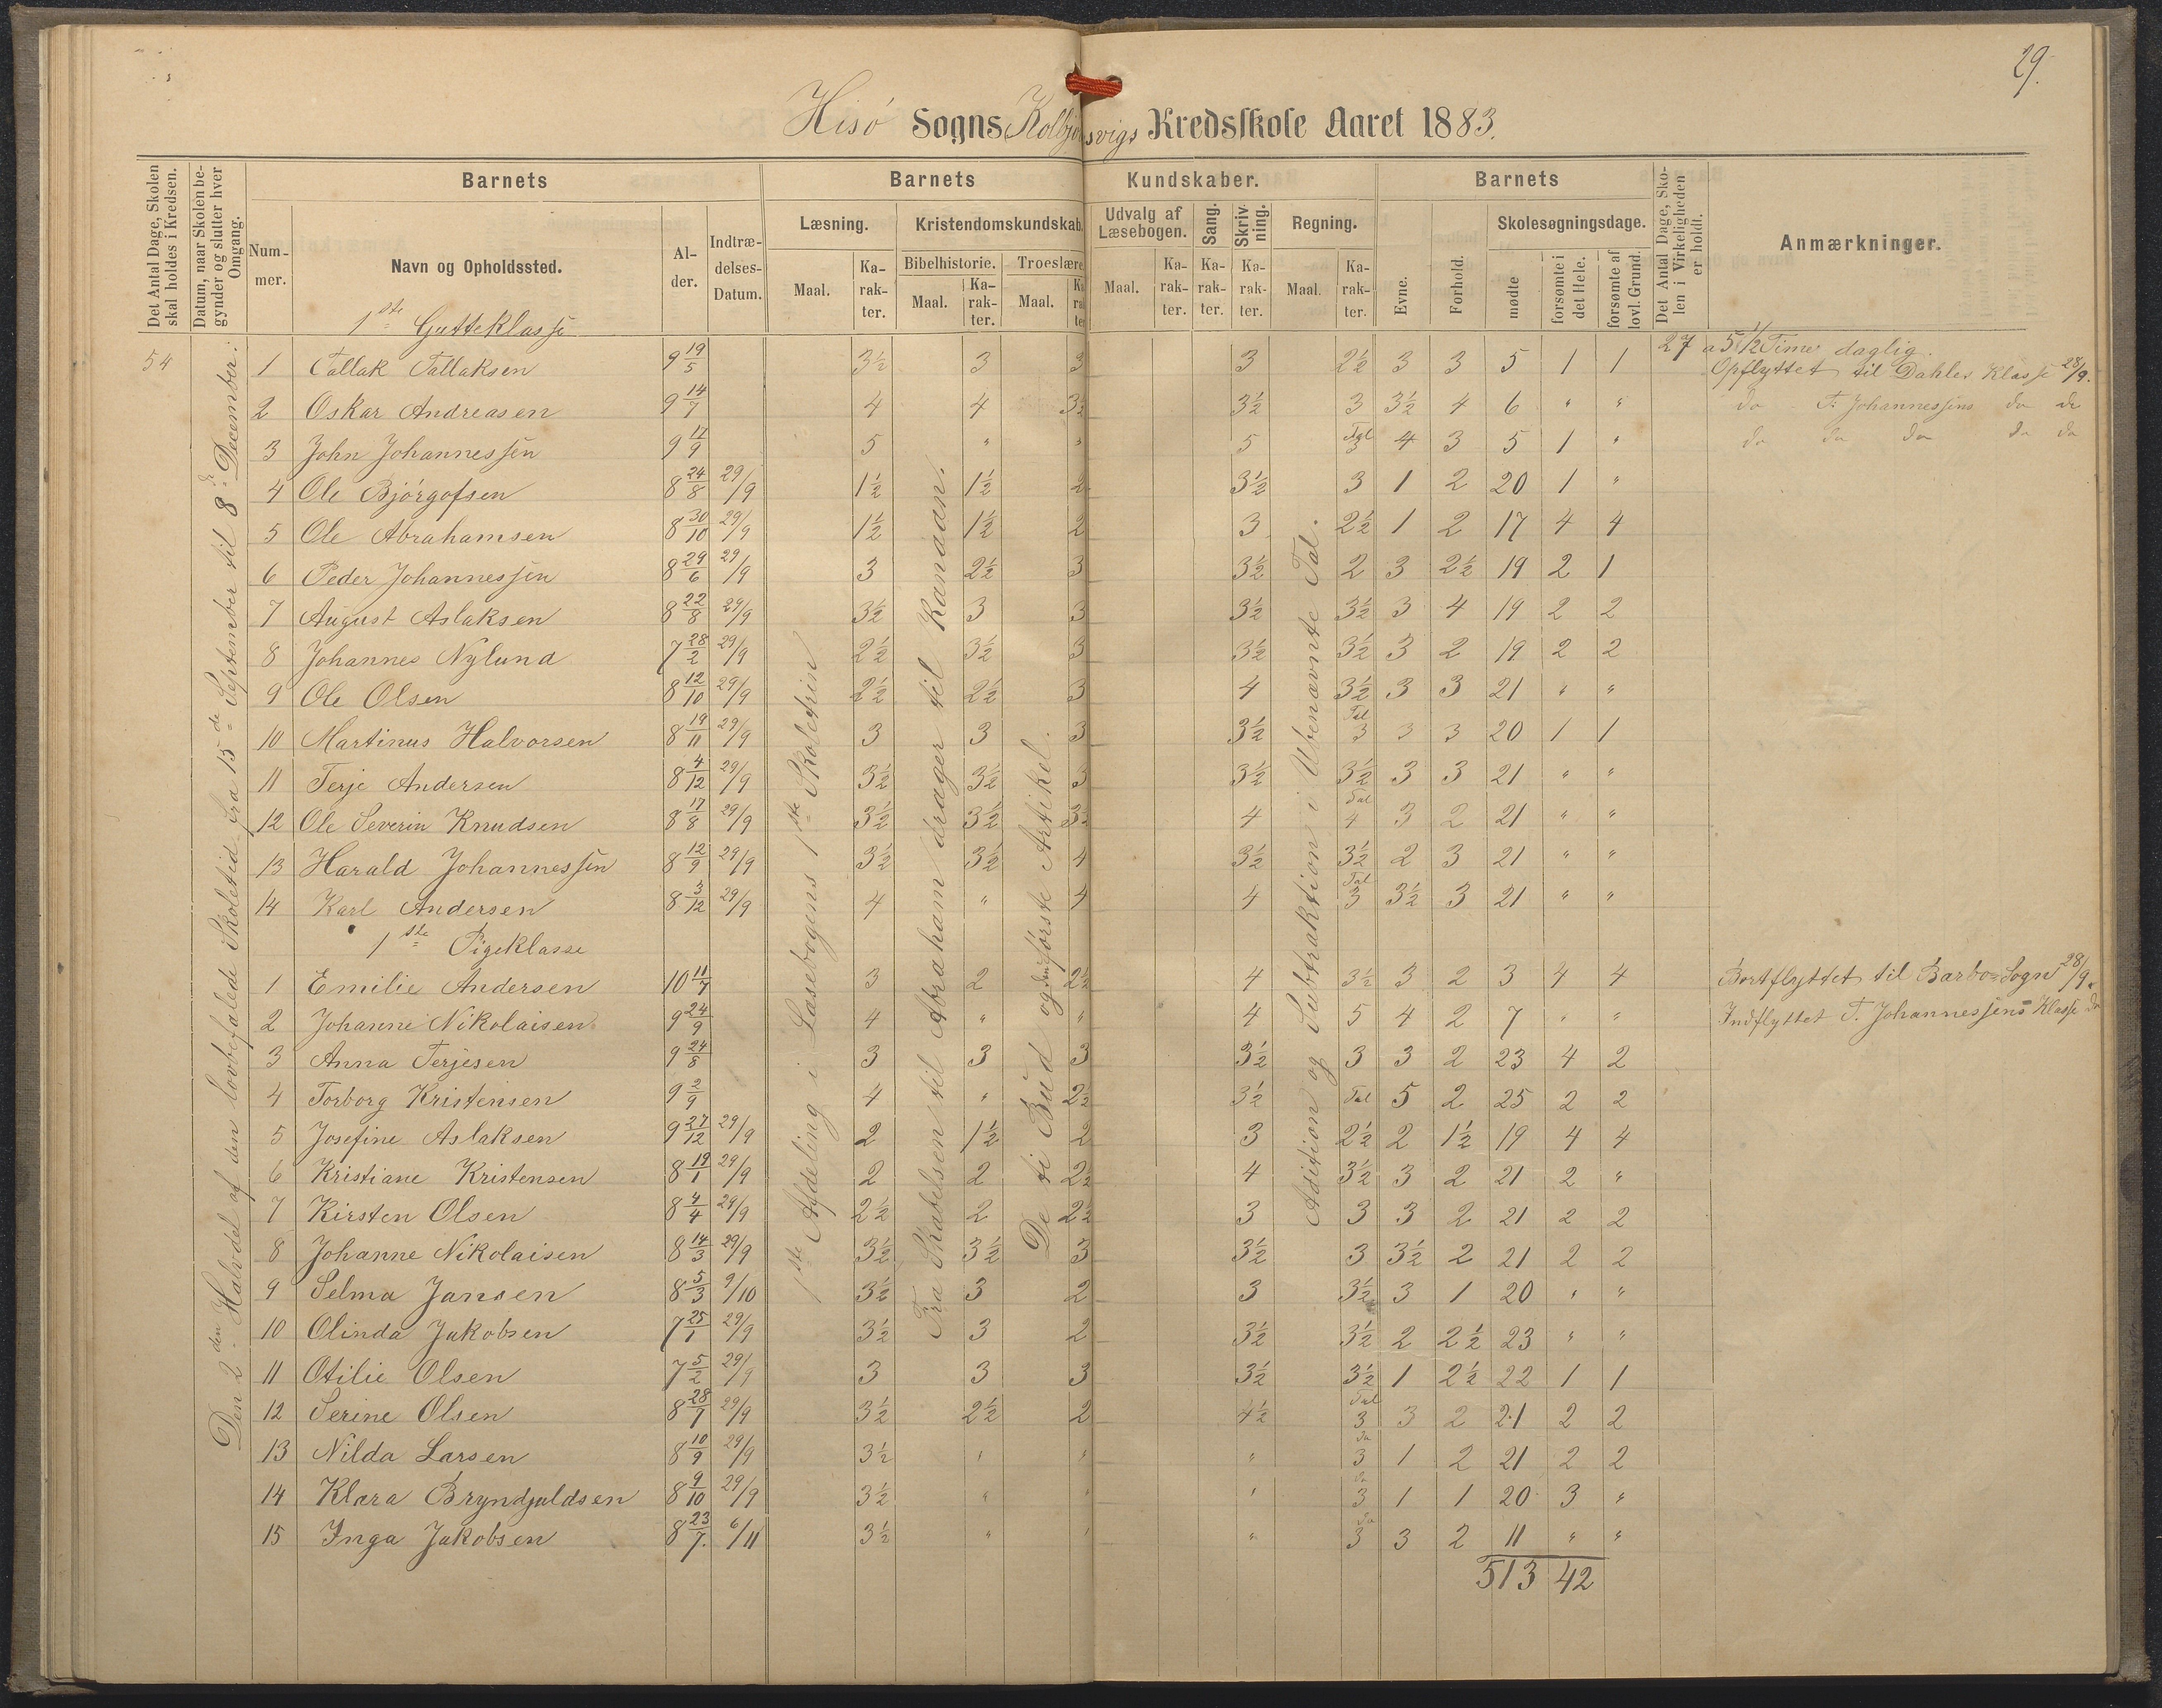 29.
Hisö Sogns Kolbjørnsvigs Kredsskole Aaret 1883.
Det Antal Dage, Skolen skal holdes i Kredsen.
Datum, naar Skolen begynder og slutter hver Omgang.
Barnets
Barnets
Kundskaber.
Barnets
Det Antal Dage, Skolen i Virkeligheden er holdt.
Anmærkninger.
Nummer.
Navn og Opholdssted.
Alder.
Indtrædelses-Datum.
Læsning.
Kristendomskundskab.
Udvalg af Læsebogen.
Sang.
Skrivning.
Regning.
Evne.
Forhold.
Skolesøgningsdage.
Bibelhistorie.
Troeslære.
Maal. Karakter. Maal. Karakter. Maal. Maal. Karakter. Karakter. Karakter. Maal. Karakter.
mødte
forsømte i det Hele.
forsømte af lovl. Grund.
Den 2den Halvdel af den lovbefalede Skoletid fra 15de September til 8de December.
1ste Afdeling i Læsebogens 1ste Skoletrin
Fra Skabelsen til Abraham drager til Kanaan.
De ti Bud og den første Artikel.
Adition og Subtraktion i Ubenævnte Tal.
1ste Gutteklasse
54 1 Tallak Tallaksen 9 19/5 3½ 3 3 3 2½ 3 3 5 1 1 27 a 5½ Time daglig.
Opflyttet til Dahles Klasse 28/9.
2 Oskar Andreasen 9 14/7 4 4 3½ 3½ 3 3½ 4 6 " " do T. Johannessens do do
3 John Johannessen 9 11/9 5 " " 5 Tal 3 4 3 5 1 " do do do do do
4 Ole Bjørgofsen 8 24/8 29/9 1½ 1½ 2 3½ 3 1 2 20 1 "
5 Ole Abrahamsen 8 30/10 29/9 1½ 1½ 2 3 2½ 1 2 17 4 4
6 Peder Johannessen 8 29/6 29/9 3 2½ 3 3½ 2 3 2½ 19 2 1
7 August Aslaksen 8 22/8 29/9 3½ 3 3 3½ 3½ 3 4 19 2 2
8 Johannes Nylund 7 28/2 29/9 2½ 3½ 3 3½ 3½ 3 2 19 2 2
9 Ole Olsen 8 12/10 29/9 2½ 2½ 3 4 3½ 3 3 21 " "
10 Martinus Halvorsen 8 19/11 29/9 3 3 3 3½ Tal 3 3 3 20 1 1
11 Terje Andersen 8 4/12 29/9 3½ 3½ 3 3½ 3½ 3 3 21 " "
12 Ole Severin Knudsen 8 17/8 29/9 3½ 3½ 3½ 4 Tal 4 3 2 21 " "
13 Harald Johannessen 8 12/9 29/9 3½ 3½ 4 3½ 3½ 2 3 21 " "
14 Karl Andersen 8 3/12 29/9 4 " 4 4 Tal 3 3½ 3 21 " "
1ste Pigeklasse
1 Emilie Andersen 10 11/7 3 2 2½ 4 3½ 3 2 3 4 4 Bortflyttet til Barbo Sogn 28/9.
2 Johanne Nikolaisen 9 24/9 4 " " 4 5 4 2 7 " " Indflyttet T. Johannessens Klasse do
3 Anna Terjesen 9 24/8 3 3 3 3½ 3 3 2 23 4 2
4 Torborg Kristensen 9 2/9 4 " 2½ 3½ Tal 5 2 25 2 2
5 Josefine Aslaksen 9 27/12 29/9 2 1½ 2 3 2½ 2 1½ 19 4 4
6 Kristiane Kristensen 8 19/1 29/9 2 2 2½ 4 3½ 3 2 21 2 "
7 Kirsten Olsen 8 4/4 29/9 2½ 2 2½ 3 3 3 2 21 2 2
8 Johanne Nikolaisen 8 14/3 29/9 3½ 3½ 3 3½ 3 3½ 2 21 2 2
9 Selma Jansen 8 5/3 9/10 3½ 3 2 3 3½ 3 1 20 " "
10 Olinda Jakobsen 7 25/1 29/9 3½ 3 2 3½ 3½ 2 2½ 23 " "
11 Otilie Olsen 7 5/2 29/9 3 3 3 3½ 3½ 1 2½ 22 1 1
12 Serine Olsen 8 28/7 29/9 3½ 2½ 2 4½ Tal 3 3 2 21 2 2
13 Nilda Larsen 8 10/9 29/9 3½ " " " do 3 1 2 21 2 2
14 Klara Bryndjuldsen 8 9/10 29/9 3½ " " " do 3 1 1 20 3 "
15 Inga Jakobsen 8 23/7. 6/11 3½ " " " do 3 3 2 11 " "
513 42